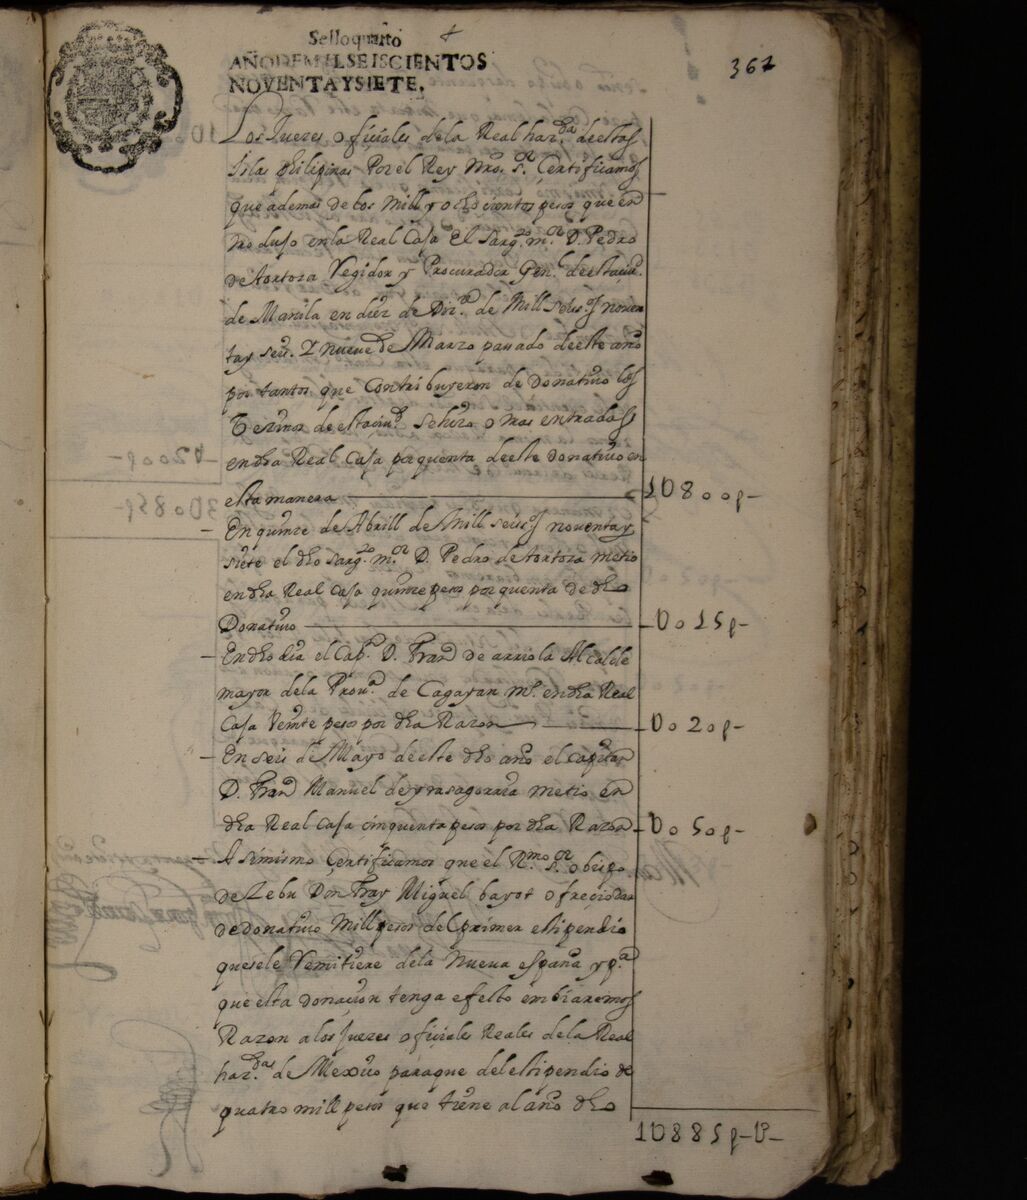 Selloquarto
AÑODEMILSEISCIENTOS
NOVENTAYSIETE.
367
Los Juezes oficiales de la Real haz.da destas
Islas Philipinas Por el Rey Nro. S.r Certificamos
que ademas de los Mill y ochocientos pesos que en
tro duso en la Real Caja El Sarg.to m.or D. Pedro
de Aortoza Regidor y Procurador Gen.l destaciu.d
de Manila en diez de Diz.e de Mill seis.os noven
tay seis. Y Nueve de Marzo passado deeste año
por tantos que Contribuyeron de Donativo los
Vezinos de estaciu.d se hizo o mas entradas
en dha Real Caja por quenta deeste Donativo en
esta manera 1U800p-
En quinze de Abrill de Mill seis.os noventa y
siete el dho Sarg.to m.or D. Pedro de Aortoza metio
en dha Real Caja quinze pesos por quenta de dho
Donativo U015p-
En dho dia el Cap.n D. Fran.co de arriola Alcalde
mayor de la Prov.a de Cagayan m.o en dha Real
Caja Veinte pesos por dha Razon U020p-
En seis de Mayo deeste dho año el Capitan
D. Fran.co Manuel de yrasagorria metio en
dha Real Caja cinquenta pesos por dha Razon U050p-
Asimismo Certificamos que el R.mo S.or obispo
de Zebu Don Fray Miguel bayot ofrecio dar
de donativo Mill pesos del primer estipendio
quesele Remitiere de la Nueva españa y p.a
que esta donacion tenga efecto embiaremos
Razon a los Juezes oficiales Reales de la Real
haz.da de Mexico paraque del estipendio de
quatro mill pesos que tiene al año dho
1U885p-U-